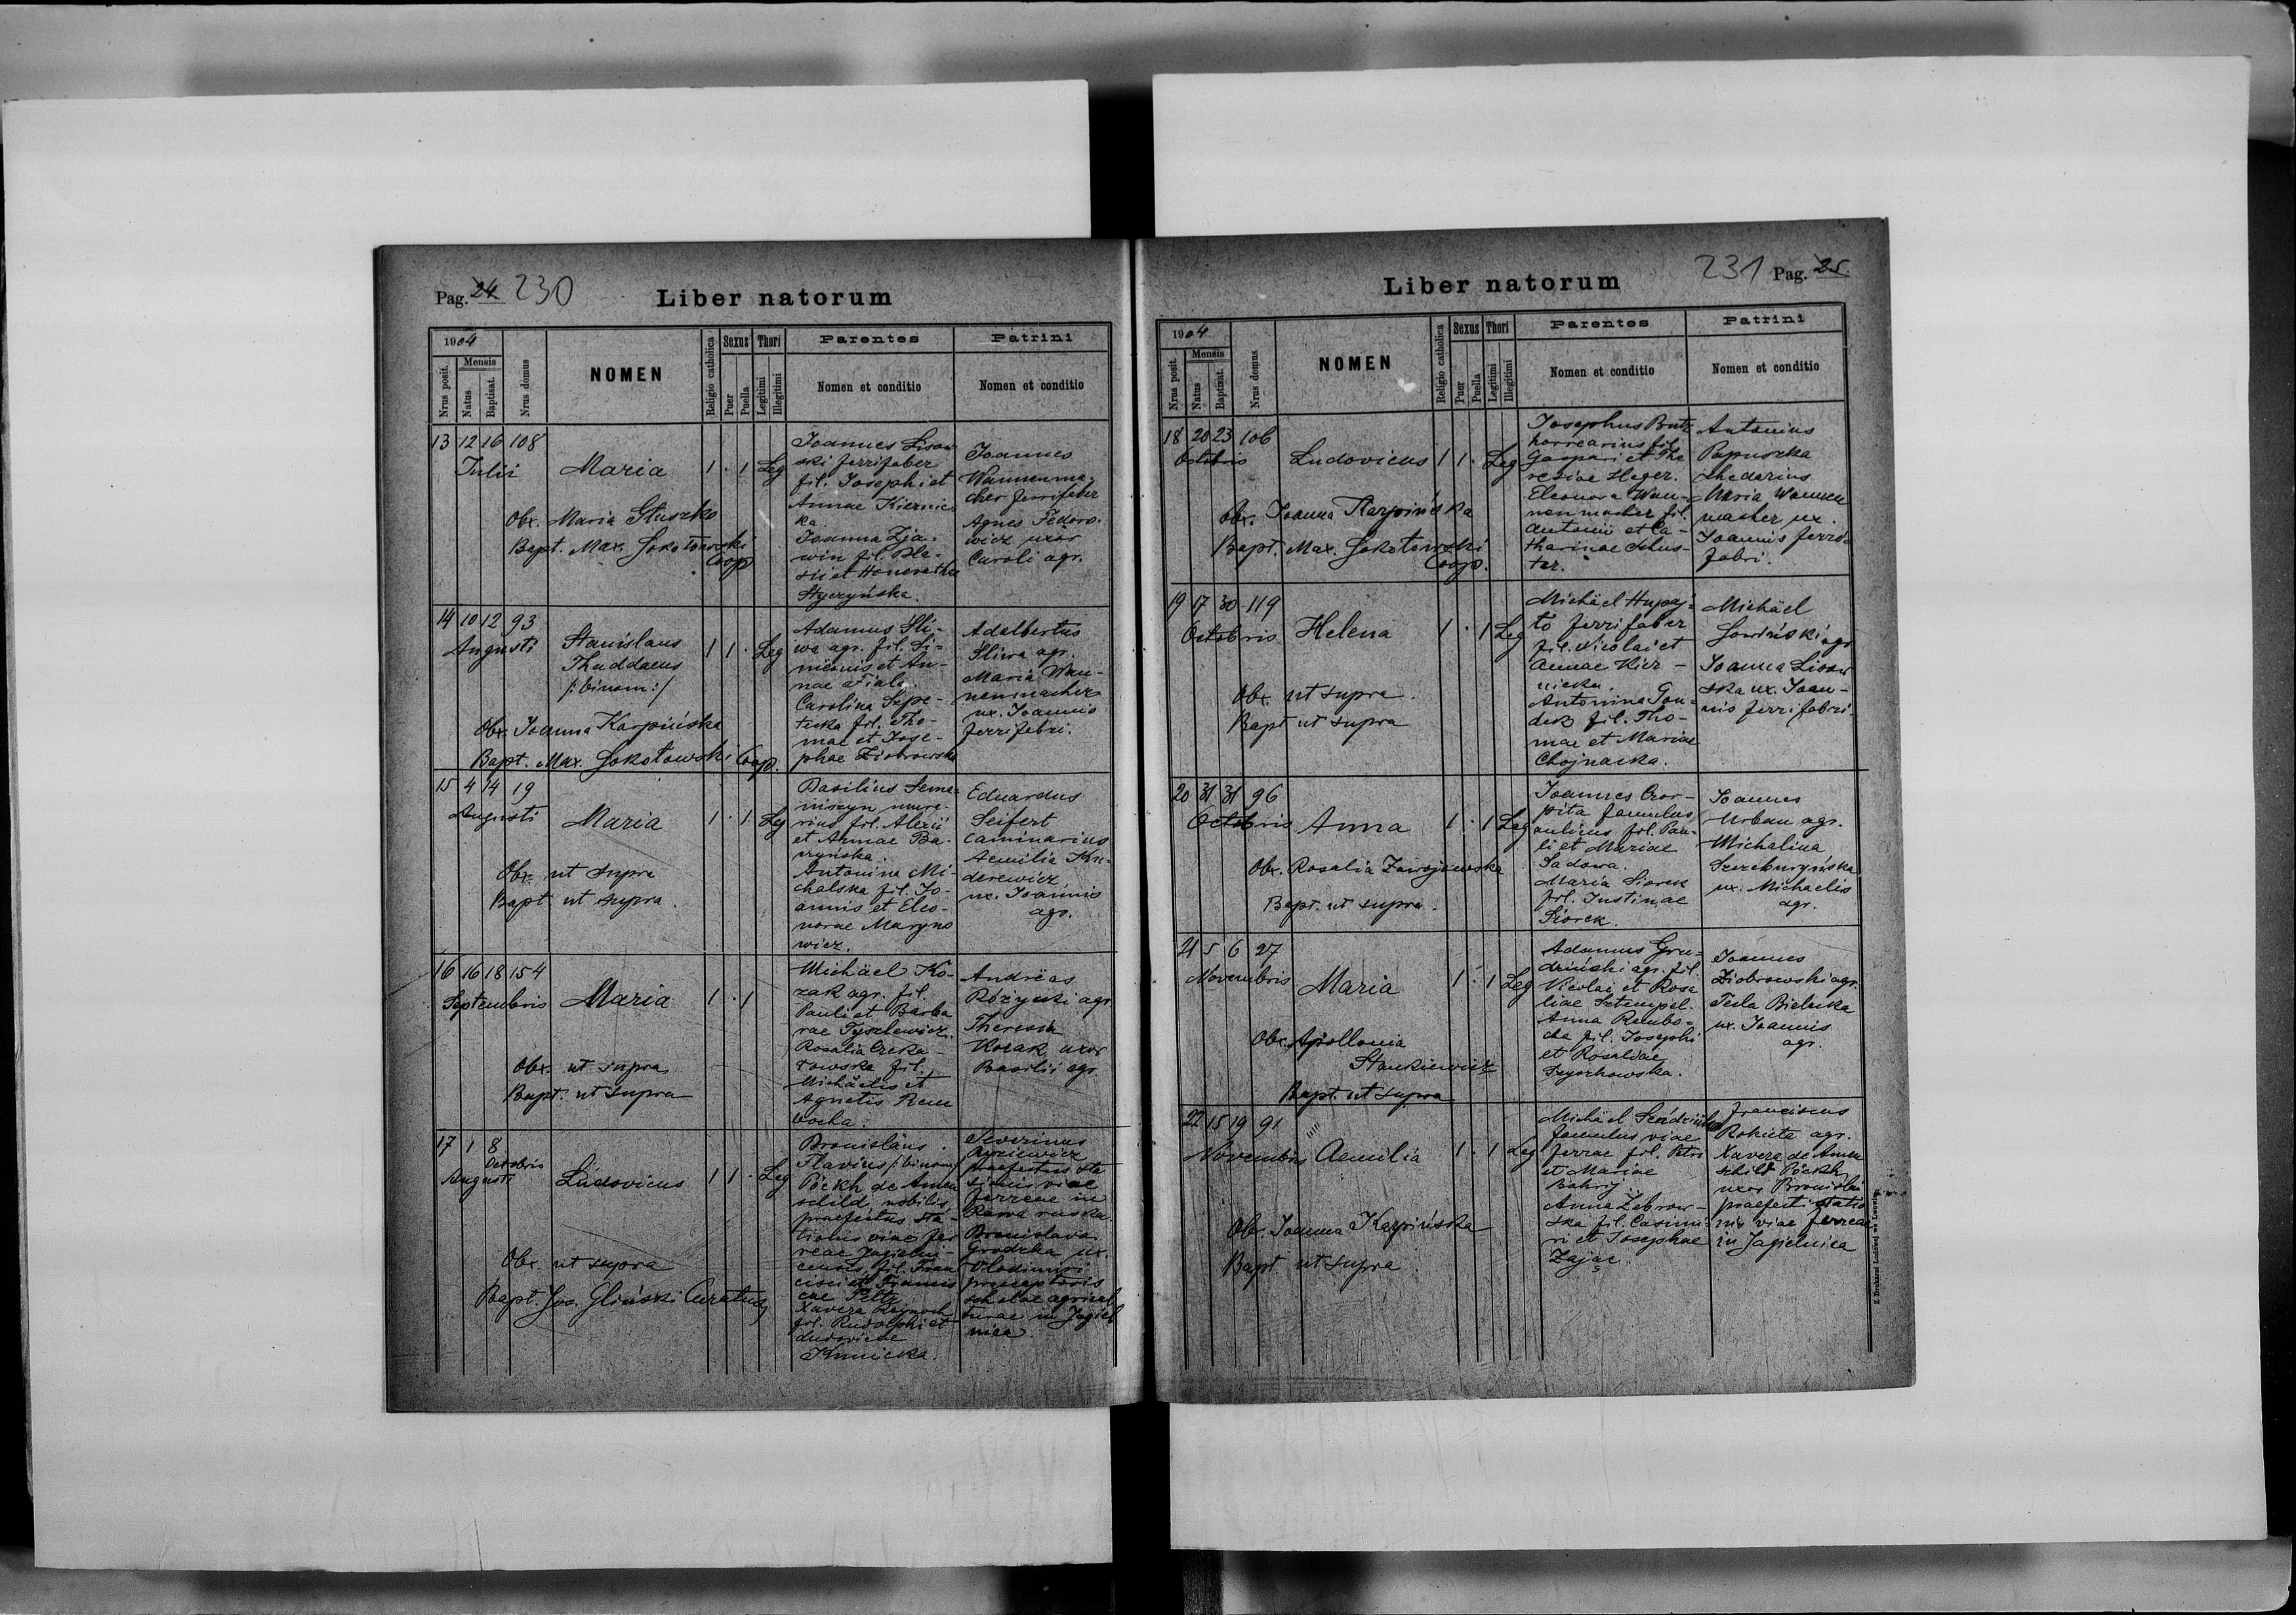 Pag. 24 230
Liber natorum
1904
Mensis
Nrus posit.
Natus
Baptisat.
Nrus domus
NOMEN
Religio catholica
Sexus
Puer
Puella
Thori
Legitimi
Illegitimi
Parentes
Nomen et conditio
Patrini
Nomen et conditio
13 12 16 108
Julii
Maria 1 · 1 Leg
Obx. Maria Głuszko
Bapt. Max. Sokołowski
Coop
Joannes Lisow
ski ferrifaber
fil. Josephi et
Annae Kiernic
ka
Joanna Zja-
win fil. Bla-
sii et Honorathae
Styczyńska.
Joannes
Wannenma-
cher ferrifaber
Agnes Fedoro-
wicz uxor
Caroli agr.
14 10 12 93
Augusti
Stanislaus
Thaddaeus
/: binom :/
1 1 · Leg
Obx. Joanna Karpińska
Bapt. Max. Sokołowski Coop.
Adamus Sli-
wa agr. fil. Si-
meonis et An-
nae Fiala.
Carolina Szpe-
tecka fil. Tho-
mae et Jose-
phae Ziobrowska
Adalbertus
Sliwa agr.
Maria Wan-
nenmacher
ux. Joannis
ferrifabri.
15 4 14 19
Augusti
Maria 1 · 1 Leg
Obx. ut supra
Bapt. ut supra.
Basilius Seme-
niszyn mura-
rius fil. Alexii
et Annae Ba-
czyńska.
Antonina Mi-
chalska fil. Jo-
annis et Eleo-
norae Maryno
wicz.
Eduardus
Seifert
caminarius
Aemilia Ku-
derewicz
ux. Joannis
agr.
16 16 18 154
Septembris
Maria 1 · 1
Obx. ut supra
Bapt. ut supra
Michäel Ko-
zak agr. fil.
Pauli et Barba
rae Tyszlewicz.
Rosalia Czeka-
łowska fil.
Michäelis et
Agnetis Rem
bocha.
Andréas
Różycki agr.
Theresia
Kozak uxor
Basilii agr.
17 1 8
Octobris
Augusti
Ludovicus 1 1 · Leg
Obx. ut supra
Bapt. Jos. Gliński Curatus
Bronisläus
Flavius /: binom:/
Pöckh de Amen
schild nobilis,
praefectus sta-
tionis viae fer
reae Jagielni-
censis, fil. Fran
cisci et Francis
cae Peltz
Xavera Reynoch
fil. Rudolphi et
Ludovicae
Kunicka.
Severinus
praefectus sta
tionis viae
ferreae in
Rawa ruska.
Bronislava
Grodzka ux.
Vladimiri
praeceptoris
scholae agricul
turae in Jagiel
nica.
231 Pag. 25.
Liber natorum
1904
Mensis
Nrus posit.
Natus
Baptisat.
Nrus domus
NOMEN
Religio catholica
Sexus
Puer
Puella
Thori
Legitimi
Illegitimi
Parentes
Nomen et conditio
Patrini
Nomen et conditio
18 20 23 106
Octobris
Ludovicus 1 1 · Leg
Obx. Joanna Karpińska
Bapt. Max. Sokołowski
Coop.
Josephus Butz
horrearius fil.
Gaspari et The
resiae Heger.
Eleonora Wan-
nenmacher fil.
Antonii et Ca-
tharinae Schus-
ter.
Antonius
Papuszka
schedarius
Maria Wannen
macher ux.
Joannis ferri-
fabri.
19 17 30 119
Octobris
Helena 1 · 1 Leg
Obx. ut supra.
Bapt ut supra
Michäel Hupaj-
ło ferrifaber
fil. Nicolai et
Annae Kier-
nicka.
Antonina Gon-
dek fil. Tho-
mae et Mariae
Chojnacka.
Michäel
Sowiński agr
Joanna Lisow
ska ux. Joan-
nis ferrifabri.
20 31 31 96
Octobris
Anna 1 · 1 Leg
Obx. Rosalia Zawojowska
Bapt. ut supra.
Joannes Czor-
pita famulus
aulicus fil. Pau-
li et Mariae
Sadowa.
Maria Siorek
fil. Justinae
Siorek.
Joannes
Urban agr.
Michalina
Szezeburzyńska
ux. Michaelis
agr.
21 5 6 27
Novembris
Maria 1 · 1 Leg
Obx. Apollonia
Stankiewicz
Bapt. ut supra
Adamus Gru-
dziński agr. fil.
Nicolai et Rosa
liae Sztempel.
Anna Rembo-
cha fil. Josephi
et Rosaliae
Szychowska.
Joannes
Ziobrowski agr.
Tecla Bielecka
ux. Joannis
agr.
22 15 19 91
Novembris
Aemilia 1 · 1 Leg
Obx. Joanna Karpińska
Bapt. ut supra.
Michäel
famulus viae
ferrae fil. Petri
et Mariae
Bahrij.
Anna Zebrow-
ska fil. Casimi-
ri et Josephae
Zając.
Franciscus
Rokieta agr.
Xavera de Amen
schild Pöckh
uxor Bronislai
praefecti statio
nis viae ferreae
in Jagielnica
Z Drukarni Ludowej we Lwowie.